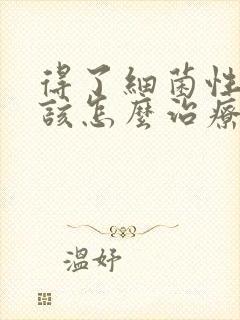 得了細菌性
該怎麼治療
溫妤